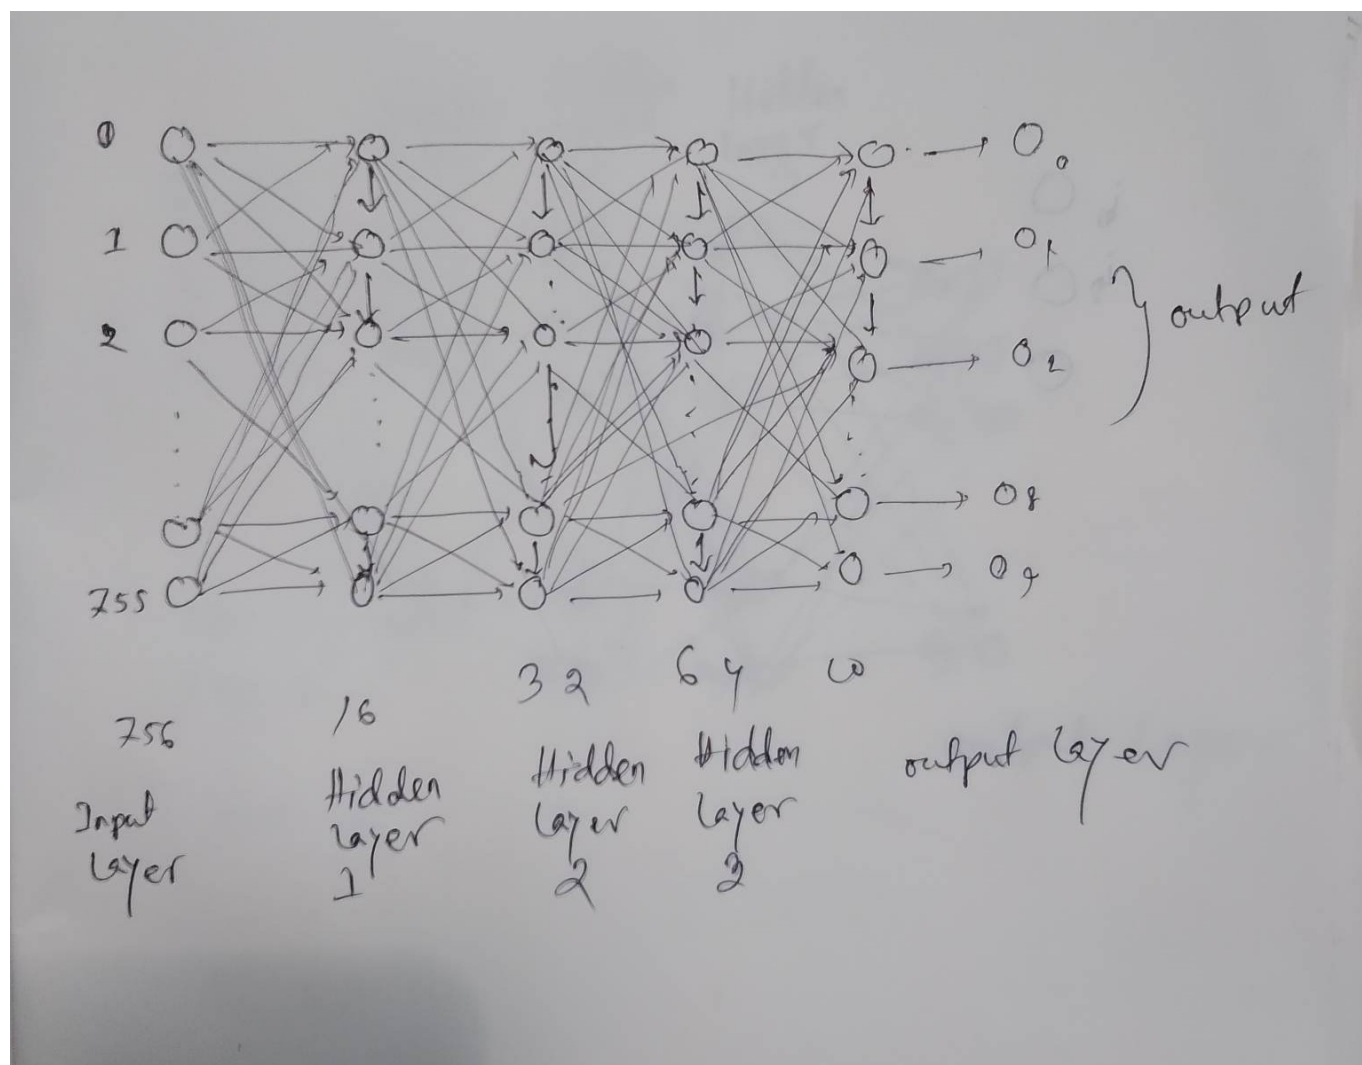 0
1
2
755
O0
O1
O2
O8
O9
output
756
16
32
64
10
Input
Layer
Hidden
Layer
1
Hidden
Layer
2
Hidden
Layer
3
output layer